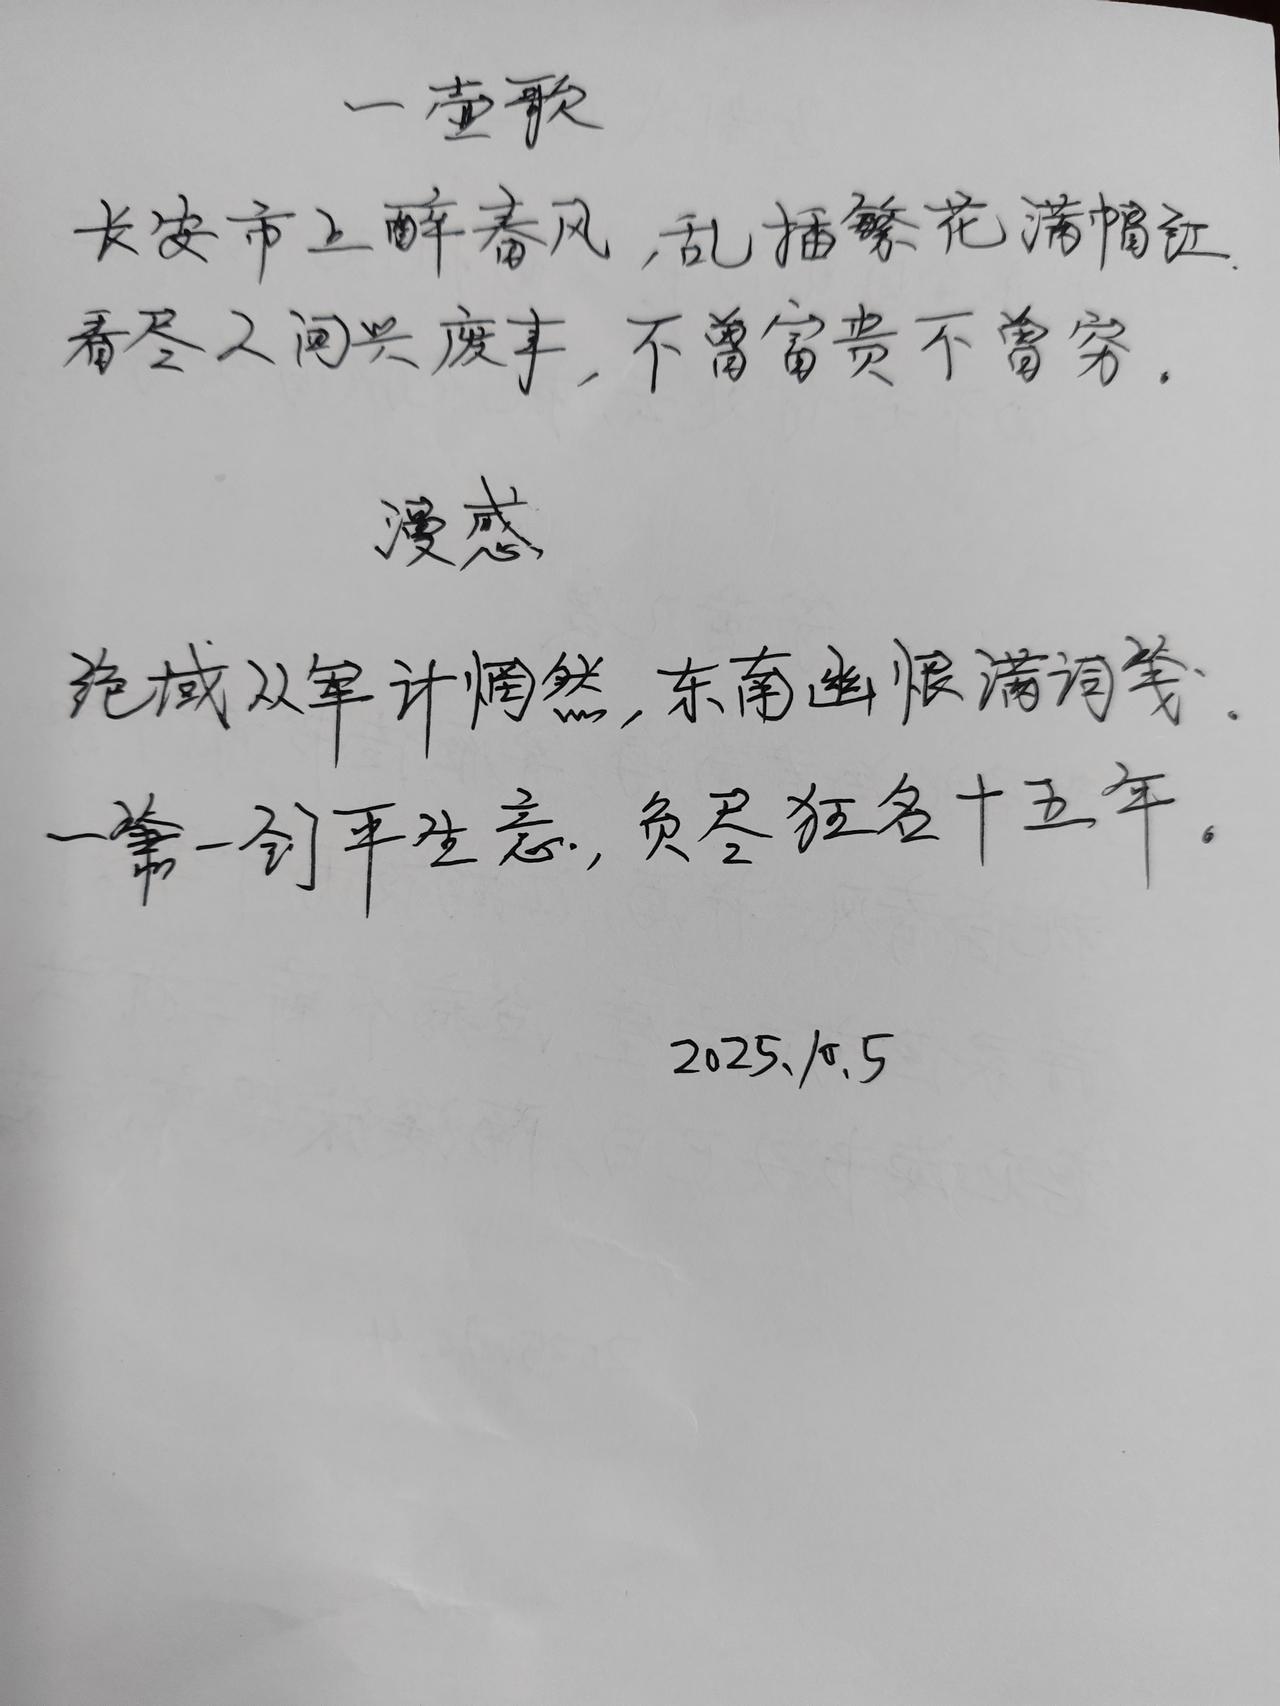 一壶歌
长安市上醉春风,乱插繁花满帽红.
看尽人间兴废事,不曾富贵不曾穷.
漫感
绝域从军计惘然,东南幽恨满词笺.
一箫一剑平生意,负尽狂名十五年。
2025.10.5